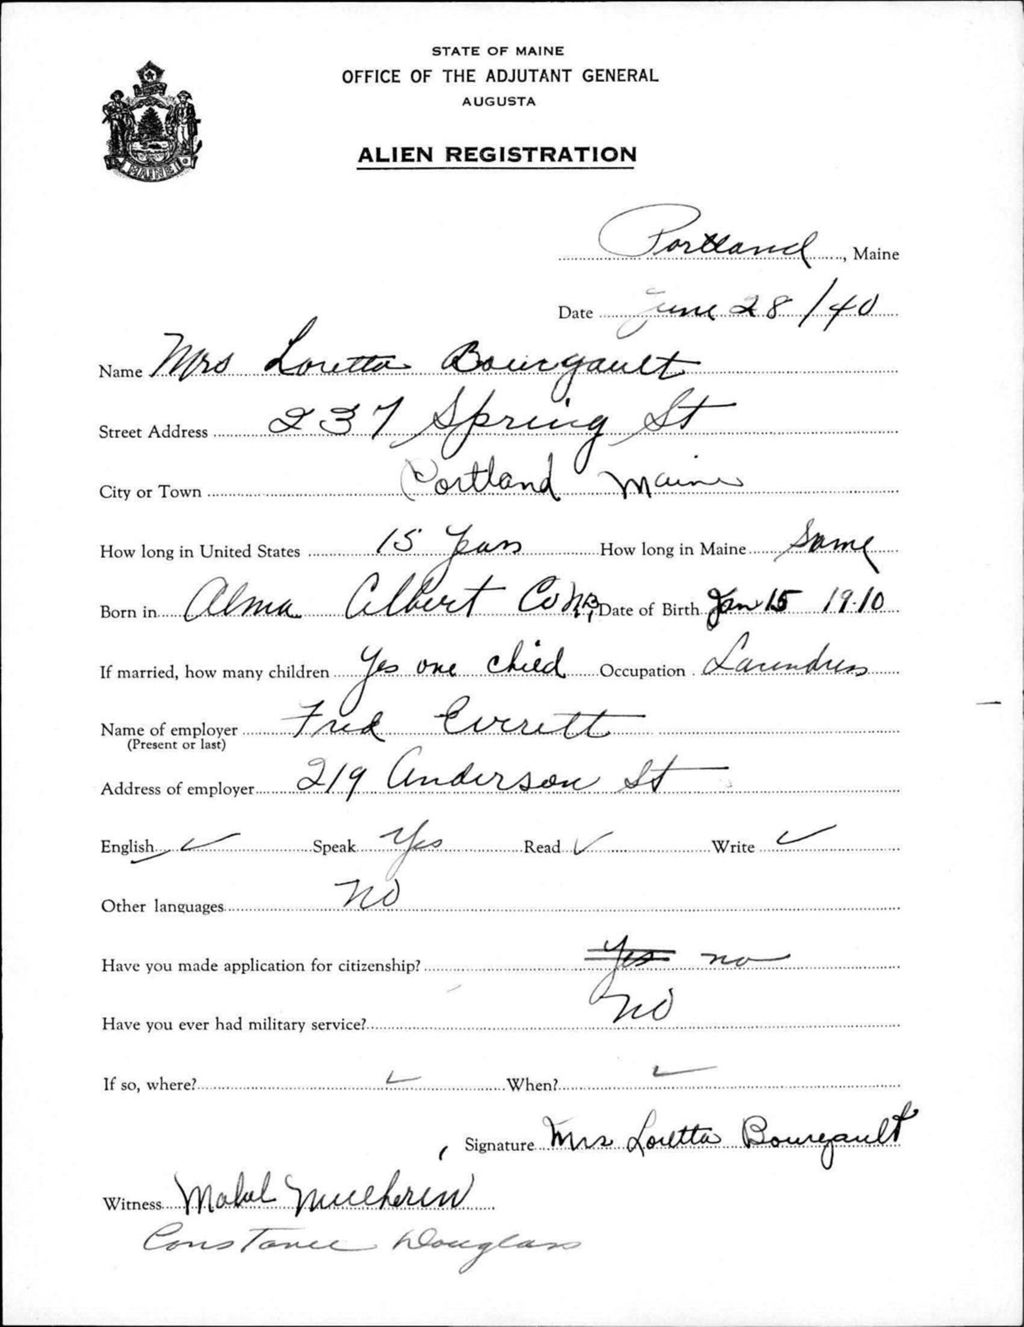 STATE OF MAINE
OFFICE OF THE ADJUTANT GENERAL
AUGUSTA
ALIEN REGISTRATION
MAINE
Portland, Maine
Date June 28/40
Name Mrs Loretta Bourgault
Street Address 237 Spring St
City or Town Portland Maine
How long in United States 15 Years How long in Maine Same
Born in Alma Albert Co N.B. Date of Birth Jan 15 1910
If married, how many children Yes one child Occupation Laundress
Name of employer Fred Everett
(Present or last)
Address of employer 219 Anderson St
English ✓ Speak Yes Read ✓ Write ✓
Other languages No
Have you made application for citizenship? Yes no
Have you ever had military service? No
If so, where? ✓ When? ✓
Signature Mrs Loretta Bourgault
Witness Mabel Mulkerin
Constance Douglass